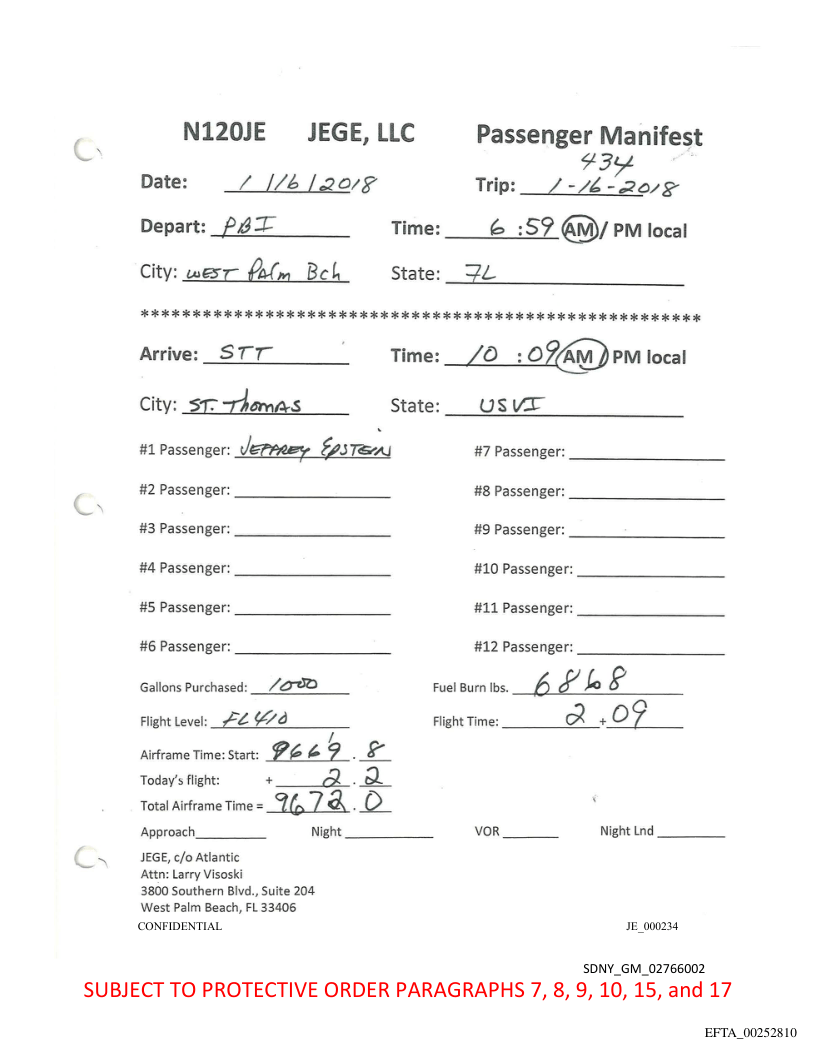 N120JE JEGE, LLC Passenger Manifest
434
Date: 1/16/2018 Trip: 1-16-2018
Depart: PBI Time: 6:59 AM/ PM local
City: WEST PAlm Bch State: FL
******************************************************
Arrive: STT Time: 10:09 AM/ PM local
City: ST. ThomAS State: USVI
#1 Passenger: JEFFREY EPSTEIN #7 Passenger:
#2 Passenger: #8 Passenger:
#3 Passenger: #9 Passenger:
#4 Passenger: #10 Passenger:
#5 Passenger: #11 Passenger:
#6 Passenger: #12 Passenger:
Gallons Purchased: 1000 Fuel Burn lbs. 6868
Flight Level: FL410 Flight Time: 2 + 09
Airframe Time: Start: 9669.8
Today's flight: + 2.2
Total Airframe Time = 9672.0
Approach Night VOR Night Lnd
JEGE, c/o Atlantic
Attn: Larry Visoski
3800 Southern Blvd., Suite 204
West Palm Beach, FL 33406
CONFIDENTIAL JE_000234
SDNY_GM_02766002
SUBJECT TO PROTECTIVE ORDER PARAGRAPHS 7, 8, 9, 10, 15, and 17
EFTA_00252810